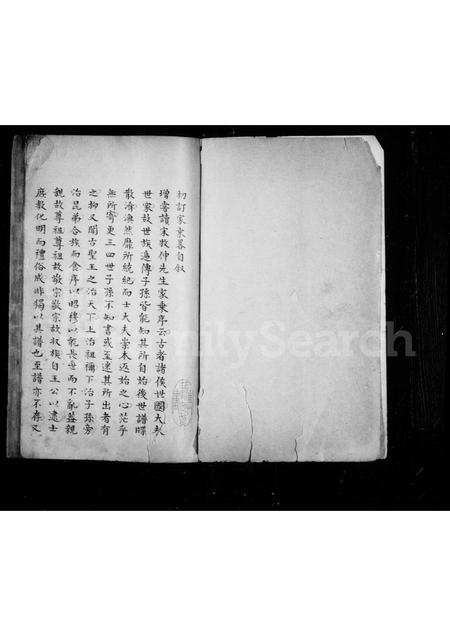 初訂家乘畧自叙
增嘗讀宋敖仲先生家乘序云古者諸侯世國大夫
世家故世族遞傳子孫皆能知其所自始後世譜牒
散淆渙然靡所統紀而士大夫崇本返始之心茫乎
無所寄更三四世子孫不知書或並逮其所出者有
之抑又聞古聖王之治天下上治祖禰下治子孫旁
治昆弟合族而食序以昭穆以能長世而不亂葢親
親故尊祖尊祖故敬宗敬宗故收族自王公以逮士
庶教化明而禮俗成非獨以其譜也至譜亦不存又
FamilySearch